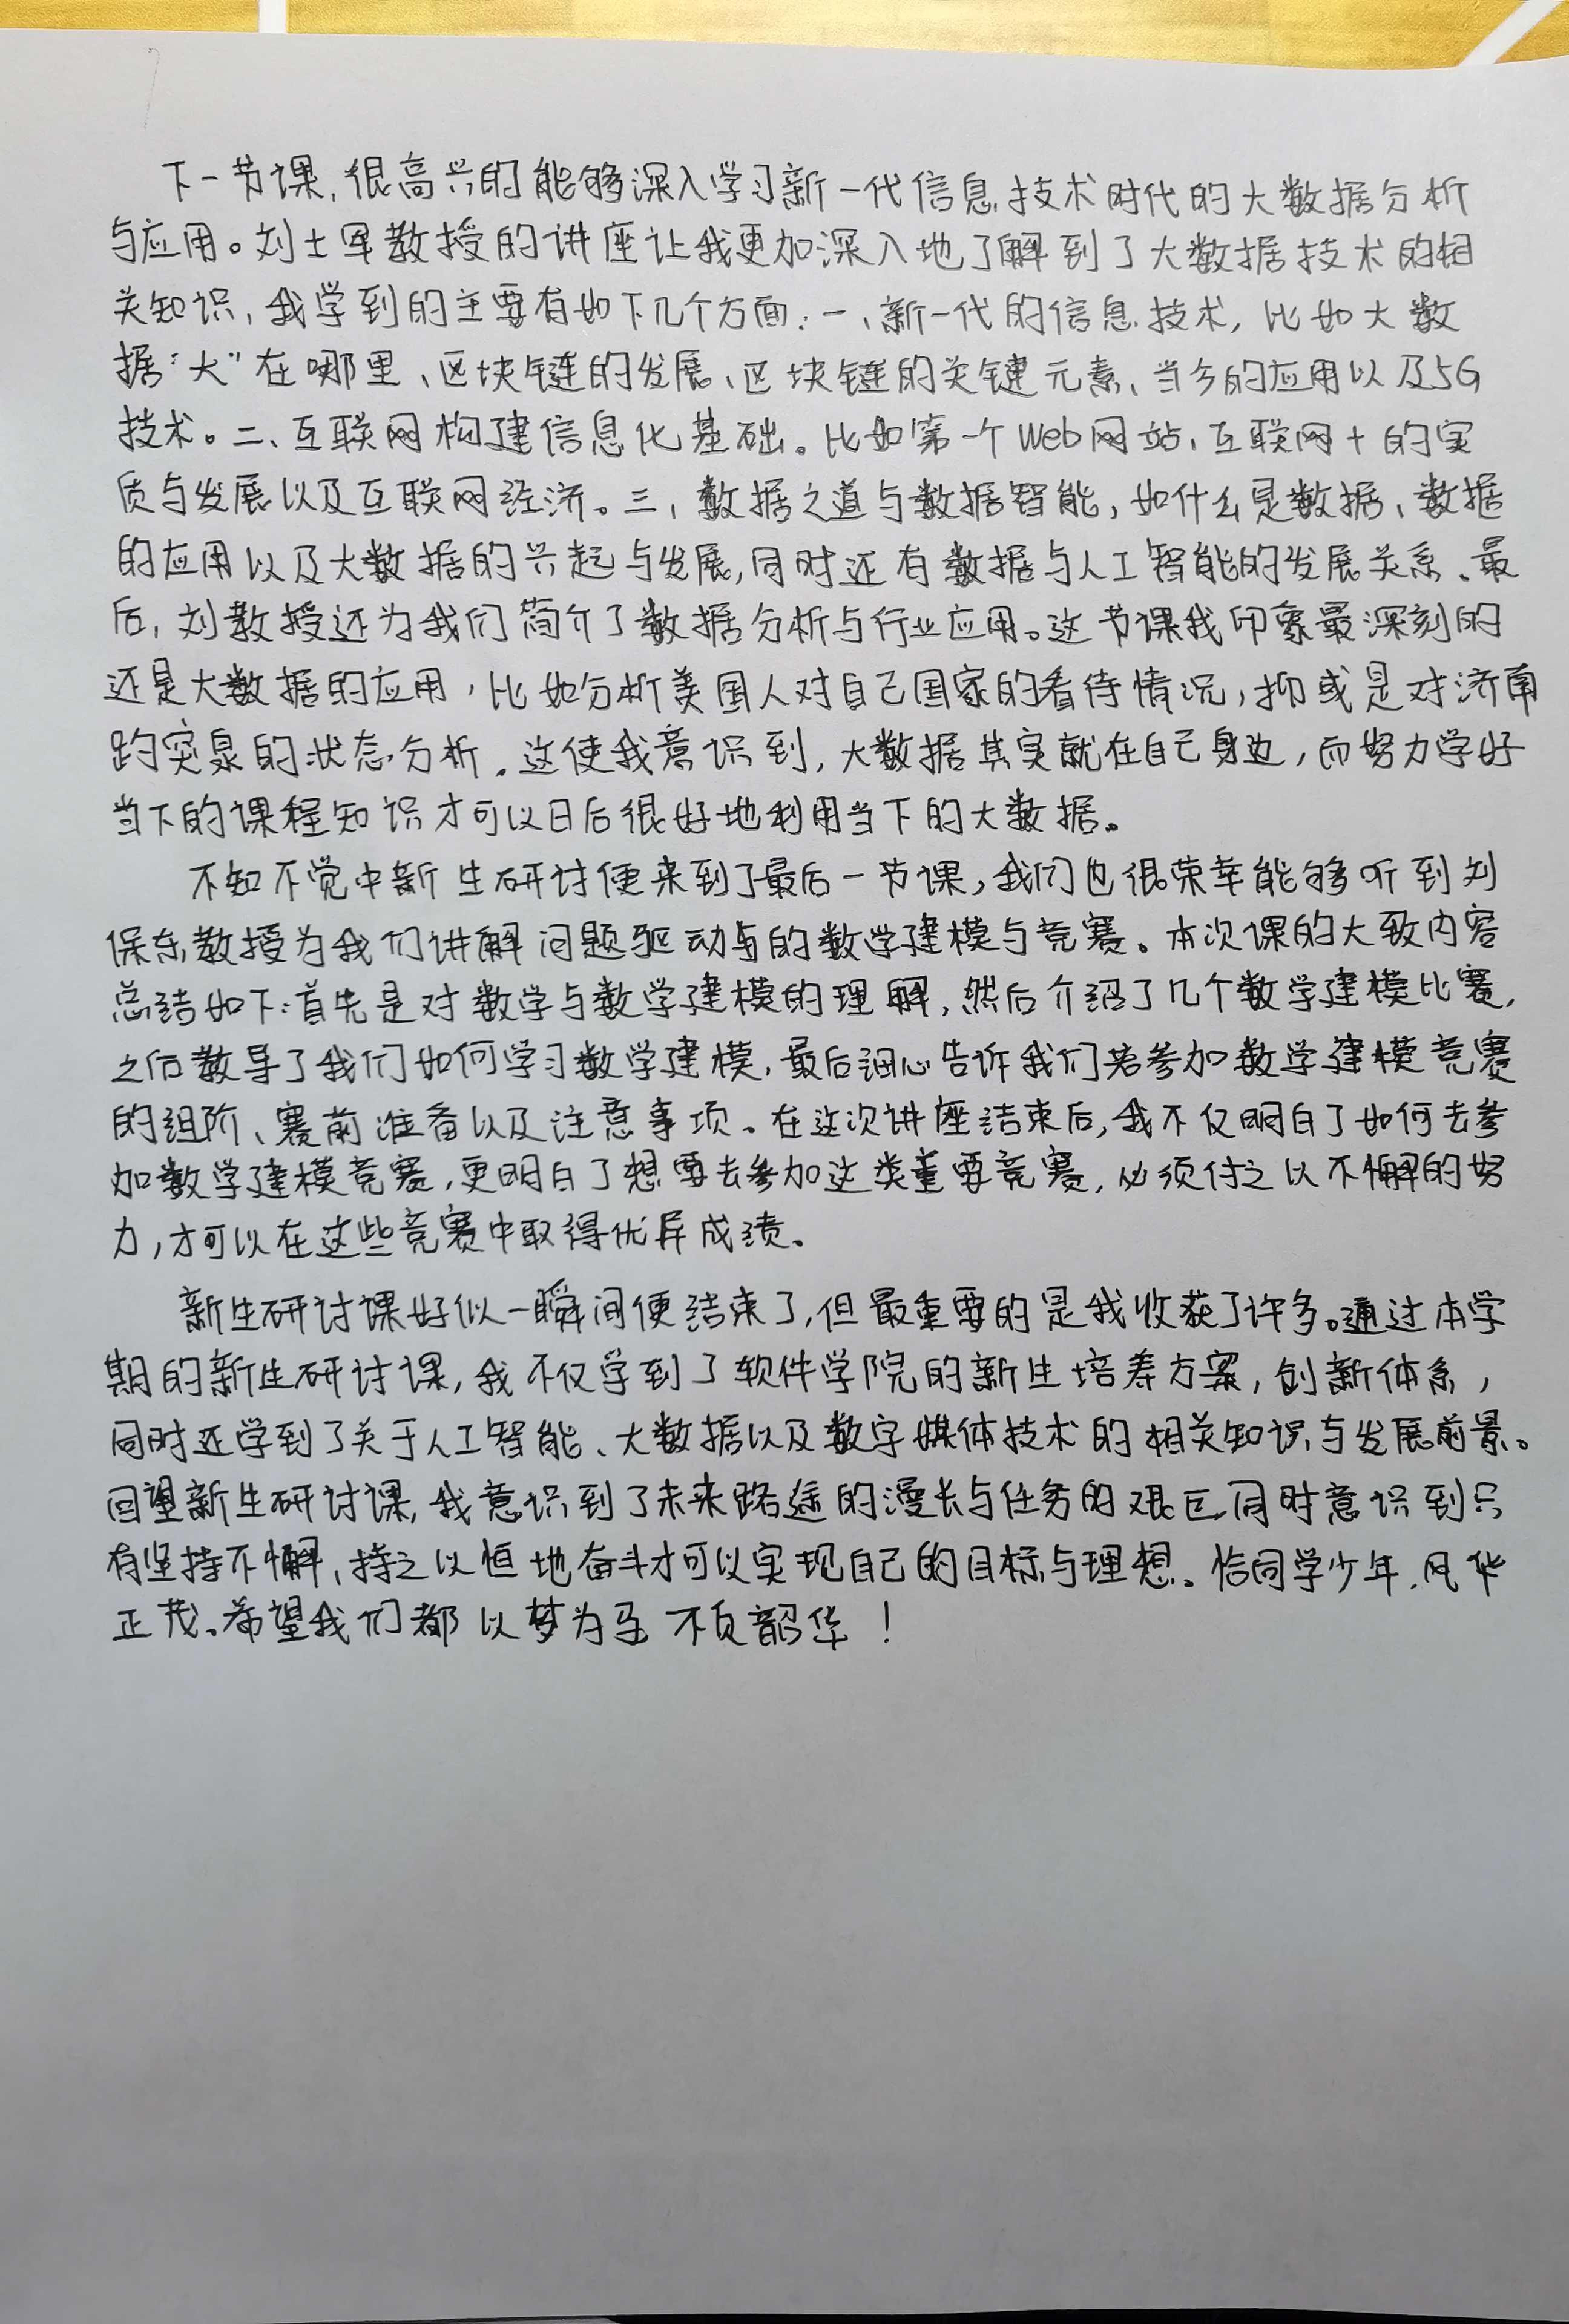 下一节课,很高兴的能够深入学习新一代信息技术时代的大数据分析
与应用。刘士军教授的讲座让我更加深入地了解到了大数据技术的相
关知识,我学到的主要有如下几个方面:一、新一代的信息技术,比如大数
据“大”在哪里、区块链的发展、区块链的关键元素、当今的应用以及5G
技术。二、互联网构建信息化基础。比如第一个Web网站、互联网+的实
质与发展以及互联网经济。三、数据之道与数据智能,如什么是数据、数据
的应用以及大数据的兴起与发展,同时还有数据与人工智能的发展关系、最
后,刘教授还为我们简介了数据分析与行业应用。这节课我印象最深刻的
还是大数据的应用,比如分析美国人对自己国家的看待情况,抑或是对济南
趵突泉的状态分析。这使我意识到,大数据其实就在自己身边,而努力学好
当下的课程知识才可以日后很好地利用当下的大数据。
不知不觉中新生研讨便来到了最后一节课,我们也很荣幸能够听到刘
保东教授为我们讲解问题驱动的数学建模与竞赛。本次课的大致内容
总结如下:首先是对数学与数学建模的理解,然后介绍了几个数学建模比赛,
之后教导了我们如何学习数学建模,最后细心告诉我们若参加数学建模竞赛
的组阶、赛前准备以及注意事项。在这次讲座结束后,我不仅明白了如何去参
加数学建模竞赛,更明白了想要去参加这类重要竞赛,必须付之以不懈的努
力,才可以在这些竞赛中取得优异成绩。
新生研讨课好似一瞬间便结束了,但最重要的是我收获了许多。通过本学
期的新生研讨课,我不仅学到了软件学院的新生培养方案,创新体系,
同时还学到了关于人工智能、大数据以及数字媒体技术的相关知识与发展前景。
回望新生研讨课,我意识到了未来路途的漫长与任务的艰巨,同时意识到只
有坚持不懈,持之以恒地奋斗才可以实现自己的目标与理想。恰同学少年,风华
正茂。希望我们都以梦为马 不负韶华!